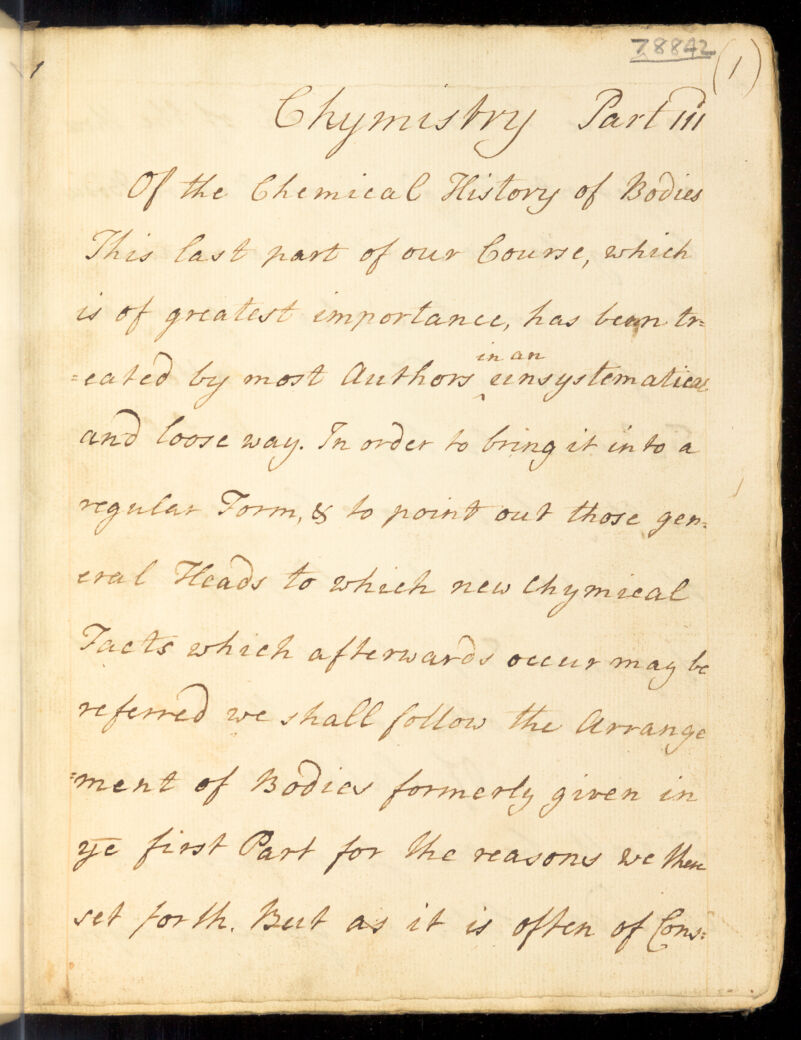 78842
(1)
Chymistry Part III
Of the Chemical History of Bodies
This last part of our Course, which
is of greatest importance, has been tr=
in an
=eated by most Authors ‸ unsystematical
and loose way. In order to bring it into a
regular Form, & to point out those gen=
eral Heads to which new Chymical
Facts which afterwards occur may be
referred we shall follow the Arrange
=ment of Bodies formerly given in
ye first Part for the reasons we there
set forth. But as it is often of Cons=